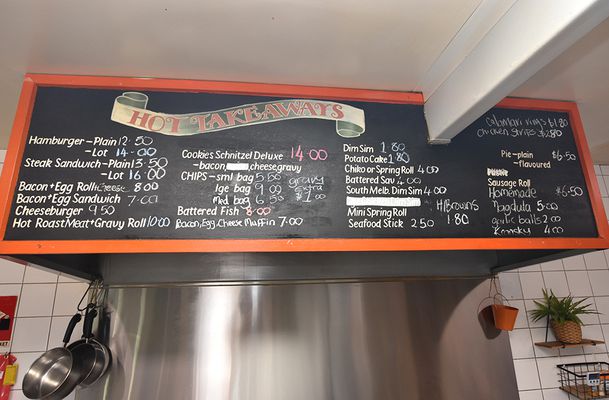 HOT TAKEAWAYS
Hamburger - Plain 12.50
- Lot 14.00
Steak Sandwich - Plain 13.50
- Lot 16.00
Bacon + Egg Roll cheese 8.00
Bacon + Egg Sandwich 7.00
Cheeseburger 9.50
Hot Roast Meat + Gravy Roll 10.00
Cookies Schnitzel Deluxe 14.00
- bacon, cheese, gravy
CHIPS - sml bag 5.50
lge bag 9.00
med bag 6.50
gravy
extra
$2.00
Battered Fish 8.00
Bacon, Egg, Cheese Muffin 7.00
Dim Sim 1.80
Potato Cake 1.80
Chiko or Spring Roll 4.00
Battered Sav 4.00
South Melb. Dim Sim 4.00
Mini Spring Roll
Seafood Stick 2.50
H/Browns
1.80
calamari rings $1.80
chicken strips $2.80
Pie - plain $6.50
- flavoured
Sausage Roll
Homemade $6.50
garlic balls 2.00
Kransky 4.00